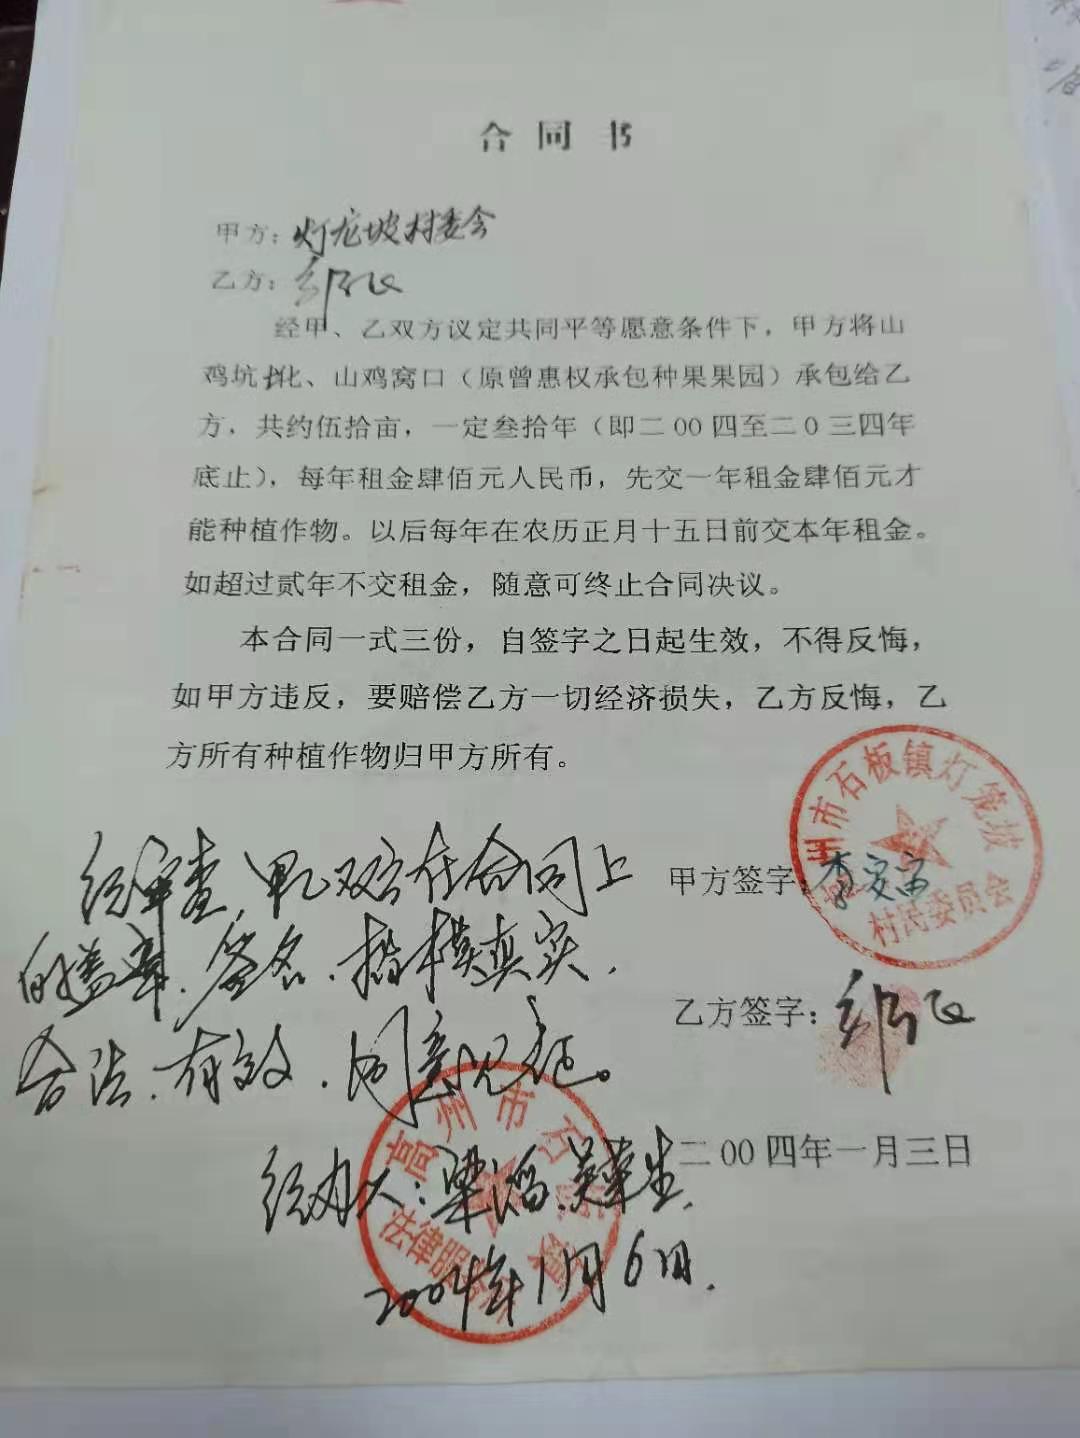 合同书
甲方：灯龙坡村委会
乙方：
经甲、乙双方议定共同平等愿意条件下，甲方将山
鸡坑北、山鸡窝口（原曾惠权承包种果果园）承包给乙
方，共约伍拾亩，一定叁拾年（即二00四至二0三四年
底止），每年租金肆佰元人民币，先交一年租金肆佰元才
能种植作物。以后每年在农历正月十五日前交本年租金。
如超过贰年不交租金，随意可终止合同决议。
本合同一式三份，自签字之日起生效，不得反悔，
如甲方违反，要赔偿乙方一切经济损失，乙方反悔，乙
方所有种植作物归甲方所有。
州市石板镇灯笼坡
村民委员会
甲方签字：李
经审查，甲乙双方在合同上
的盖章、签名、指模真实、
合法、有效，同意见证。
乙方签字：
二00四年一月三日
高州市石
法律服
经办人：梁
2004年1月6日.